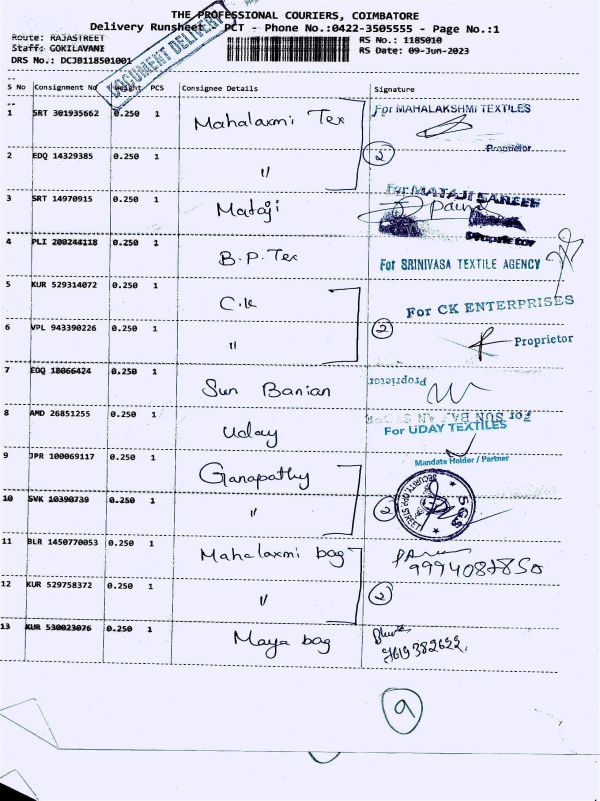 THE PROFESSIONAL COURIERS, COIMBATORE
Delivery Runsheet - PCT - Phone No.:0422-3505555 - Page No.:1
Route: RAJASTREET RS No.: 1185010
Staff: GOKILAVANI RS Date: 09-Jun-2023
DRS No.: DCJB118501001
DOCUMENT DELIVERY
S No Consignment No Weight PCS Consignee Details Signature
1 SRT 301935662 0.250 1 Mahalaxmi Tex For MAHALAKSHMI TEXTILES
Proprietor
2 EDQ 14329385 0.250 1 " 2
3 SRT 14970915 0.250 1 Mataji For MATAJI SAREES
Proprietor
4 PLI 200244118 0.250 1 B.P.Tex For SRINIVASA TEXTILE AGENCY
5 KUR 529314072 0.250 1 C.K For CK ENTERPRISES
6 VPL 943390226 0.250 1 " 2 Proprietor
7 EDQ 18066424 0.250 1 Sun Banian Proprietor
8 AMD 26851255 0.250 1 Uday For UDAY TEXTILES
Mandate Holder / Partner
9 JPR 100069117 0.250 1 Ganapathy
10 SVK 10390739 0.250 1 " 2 S G S
11 BLR 1450770053 0.250 1 Mahalaxmi bag
12 KUR 529758372 0.250 1 " 2
13 KUR 530023076 0.250 1 Maya bag
9